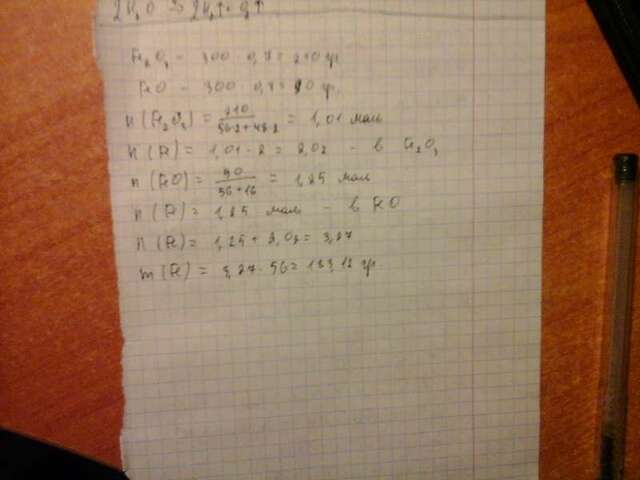 2H₂O → 2H₂↑ + O₂↑
Fe₂O₃ – 300 · 0,7 = 210 гр
FeO – 300 · 0,3 = 90 гр.
n (Fe₂O₃) = 210 / 56·2+48·2 = 1,01 моль
n (Fe) = 1,01 · 2 = 2,02 – в Fe₂O₃
n (FeO) = 90 / 56+16 = 1,25 моль
n (Fe) = 1,25 моль – в FeO
n (Fe) = 1,25 + 2,02 = 3,27
m (Fe) = 3,27 · 56 = 183,12 гр.